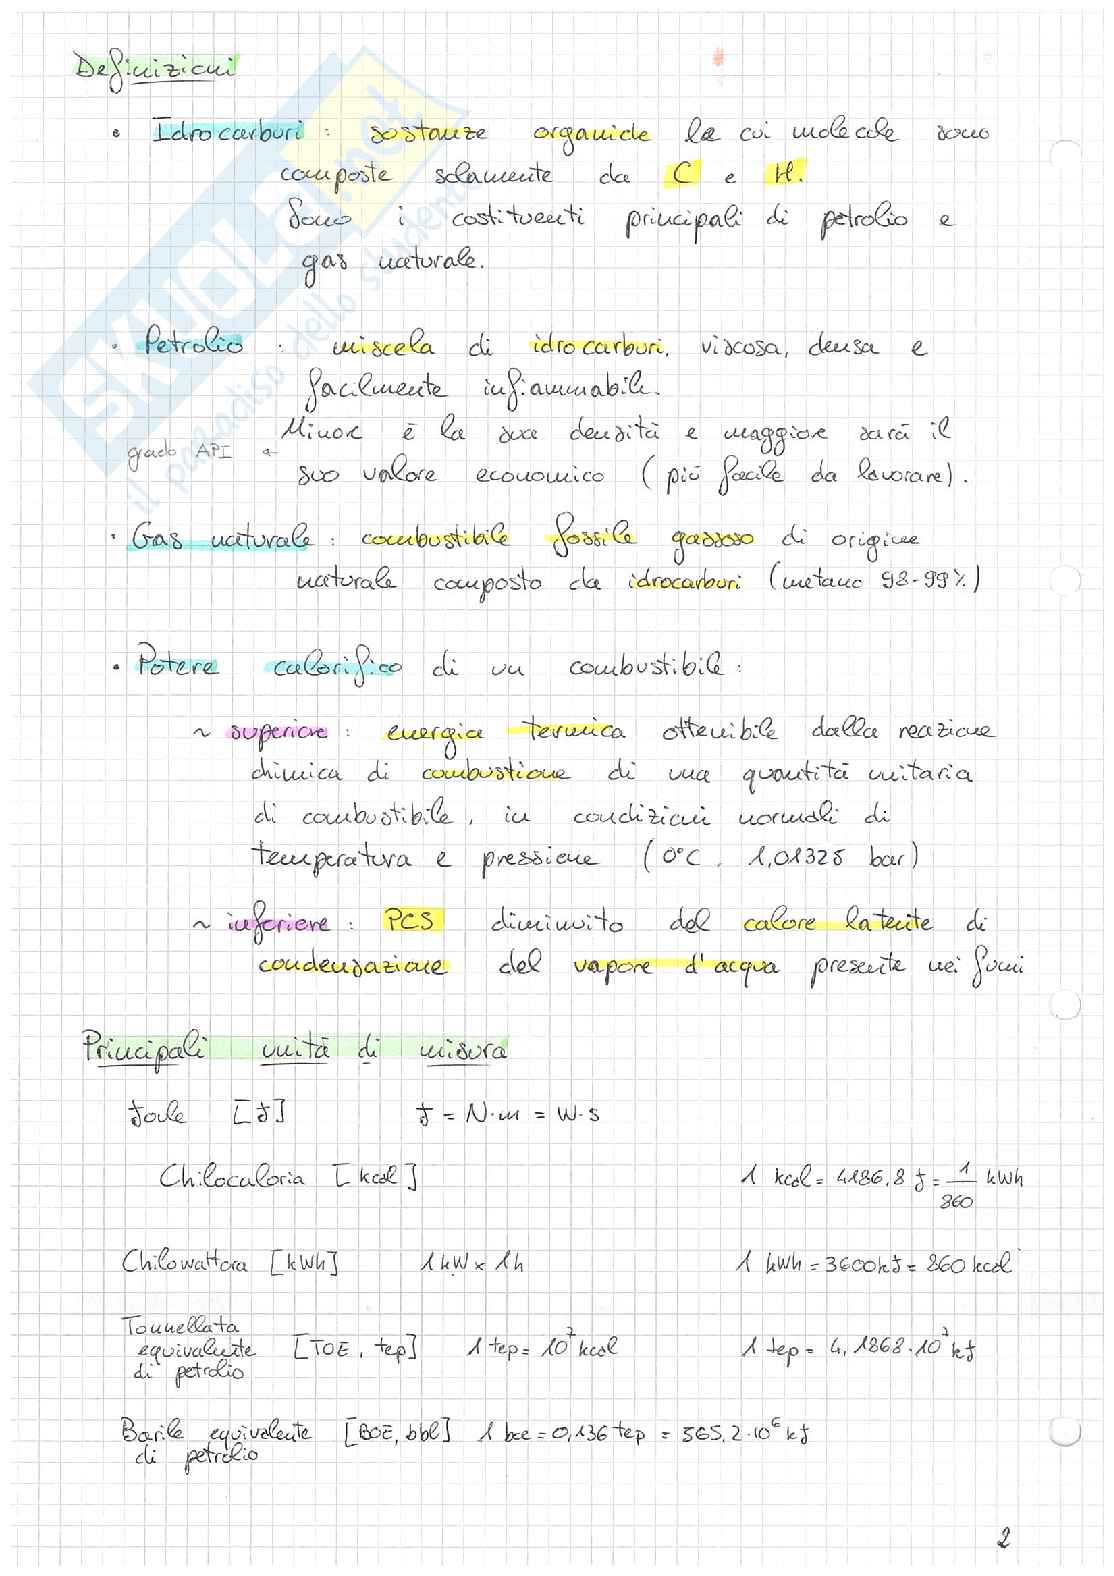 Definizioni
• Idrocarburi : sostanze organiche le cui molecole sono
composte solamente da C e H.
Sono i costituenti principali di petrolio e
gas naturale.
• Petrolio : miscela di idrocarburi, viscosa, densa e
facilmente infiammabile.
Minore è la sua densità e maggiore sarà il
grado API ←
suo valore economico (più facile da lavorare).
• Gas naturale : combustibile fossile gassoso di origine
naturale composto da idrocarburi (metano 98-99%)
• Potere calorifico di un combustibile :
~ superiore : energia termica ottenibile dalla reazione
chimica di combustione di una quantità unitaria
di combustibile, in condizioni normali di
temperatura e pressione (0°C, 1,01325 bar)
~ inferiore : PCS diminuito del calore latente di
condensazione del vapore d'acqua presente nei fumi
Principali unità di misura
Joule [J] J = N·m = W·s
Chilocaloria [kcal] 1 kcal = 4186,8 J = 1/860 kWh
Chilowattora [kWh] 1 kW × 1h 1 kWh = 3600 kJ = 860 kcal
Tonnellata
equivalente [TOE, tep] 1 tep = 10⁷ kcal 1 tep = 4,1868·10⁷ kJ
di petrolio
Barile equivalente [BOE, bbl] 1 boe = 0,136 tep = 565,2·10⁶ kJ
di petrolio
2
SKUOLA.net
il paradiso dello studente